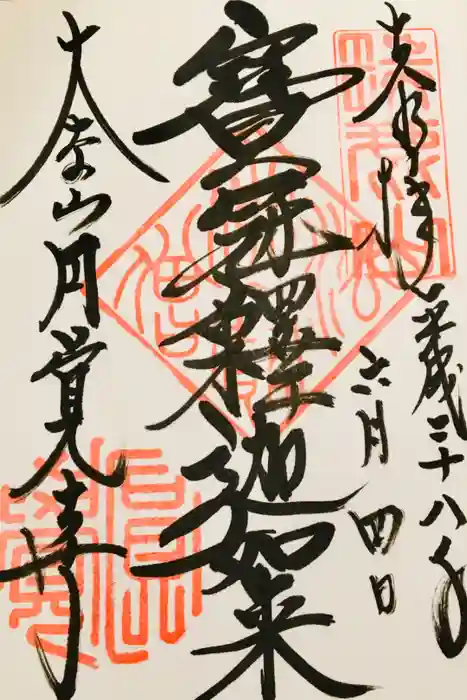 奉拝
平成二十八年
六月四日
寶冠釋迦如来
大本山円覚寺